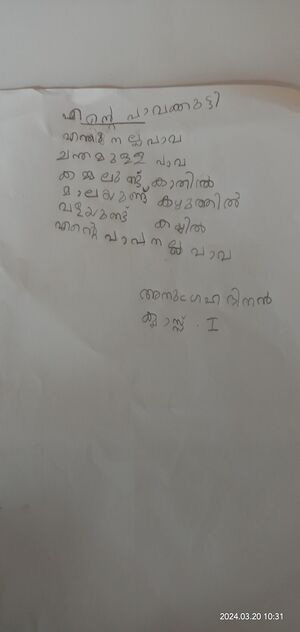 എന്റെ പാവക്കുട്ടി
എന്തു നല്ല പാവ
ചന്തമുള്ള പാവ
കമ്മലുണ്ട് കാതിൽ
മാലയുണ്ട് കഴുത്തിൽ
വളയുണ്ട് കയ്യിൽ
എന്റെ പാവ നല്ല പാവ
ക്ലാസ്സ് . I
2024.03.20 10:31